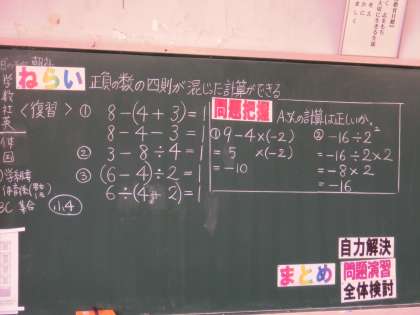 ねらい 正負の数の四則が混じった計算ができる
学
数
社
英
体
国
<復習> ① 8-(4+3)=1
8-4-3=1
② 3-8÷4=1
③ (6-4)÷2=1
6÷(4+2)=1
集合 小4
問題把握 A.次の計算は正しいか。
① 9-4×(-2)
= 5 ×(-2)
= -10
② -16÷2²
= -16÷2×2
= -8×2
= -16
まとめ
自力解決
問題演習
全体検討